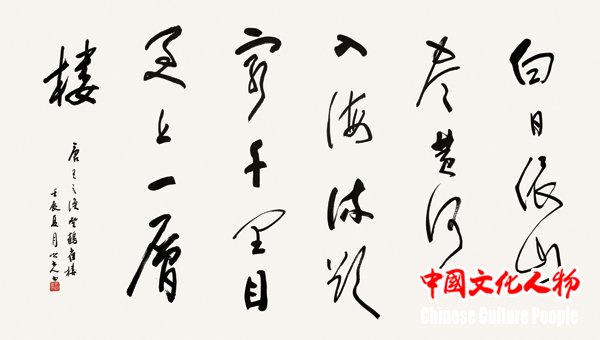 白日依山
尽黄河
入海流欲
穷千里目
更上一層
楼
唐王之涣登鹳雀楼
壬辰夏月
中國文化人物
Chinese Culture People